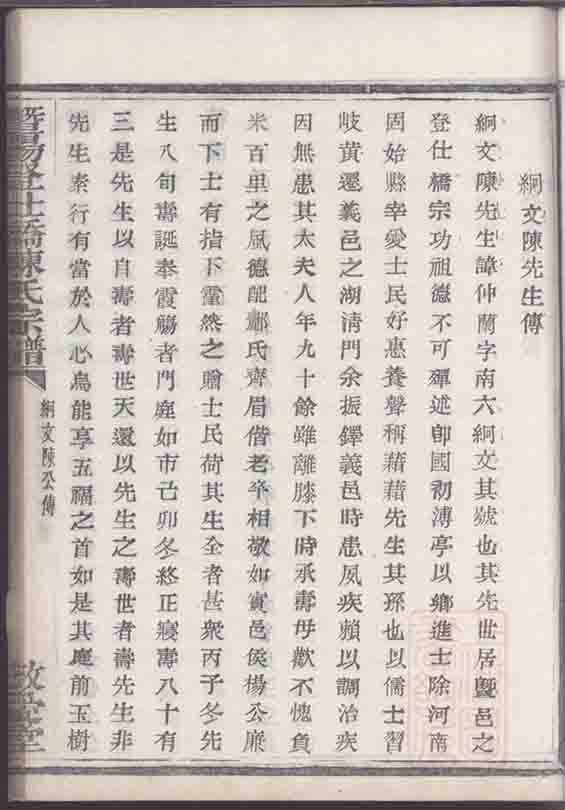 絅文陳先生傳
絅文陳先生諱仲蘭字南六絅文其號也其先世居曁邑之
登仕橋宗功祖德不可殫述卽國初溥亭以鄉進士除河南
固始縣宰愛士民好惠養聲稱藉藉先生其孫也以儒士習
岐黃遷義邑之湖淸門余振鐸義邑時患夙疾賴以調治疾
因無患其太夫人年九十餘雖離膝下時承壽母歡不愧負
米百里之風德配酈氏齊眉偕老卒相敬如賓邑侯楊公廉
而下士有指下靈然之贈士民荷其生全者甚衆丙子冬先
生八旬壽誕奉霞觴者門庭如市己卯冬終正寢壽八十有
三是先生以自壽者壽世天還以先生之壽世者壽先生非
先生素行有當於人心烏能享五福之首如是其庭前玉樹
暨陽登仕橋陳氏宗譜
絅文陳公傳